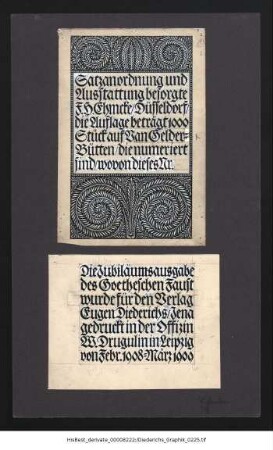 Satzanordnung und
Ausstattung besorgte
F.H.Ehmcke/Düsseldorf/
die Auflage beträgt 1000
Stück auf Van Gelder-
Bütten/die numeriert
sind/wovon dieses Nr.
Die Jubiläumsausgabe
des Goetheschen Faust
wurde für den Verlag
Eugen Diederichs/Jena
gedruckt in der Offizin
W.Drugulin in Leipzig
von Febr.1908-März 1909